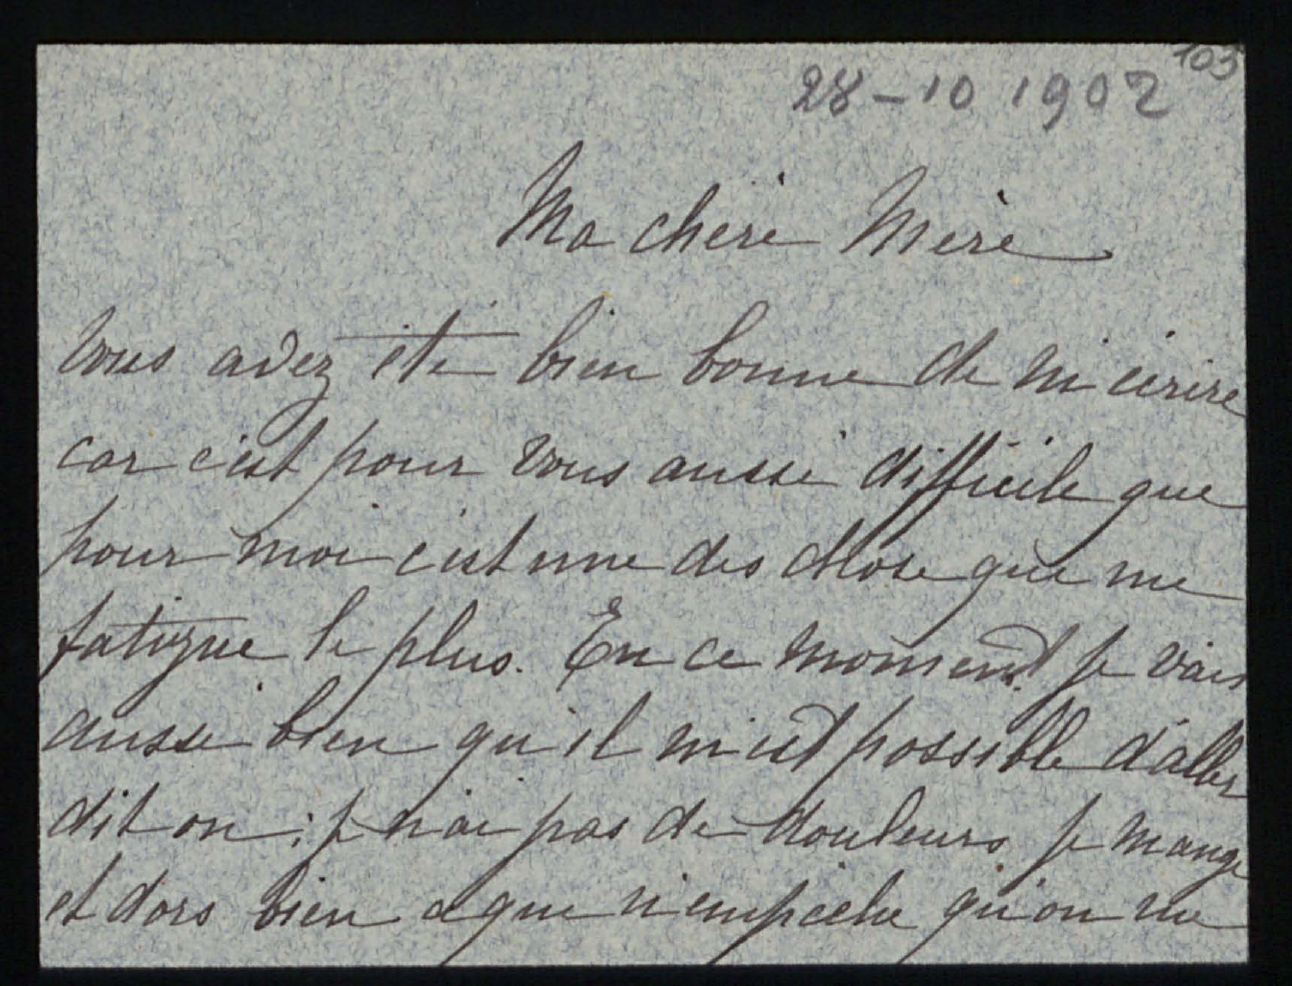 103
28-10 1902
Ma chere Mère
Vous avez été bien bonne de m'ecrire
car c'est pour vous aussi difficile que
pour moi c'est une des chose qui me
fatigue le plus. En ce moment je vais
aussi bien qu'il m'est possible d'aller
dit on; je n'ai pas de douleurs je mange
et dors bien ce qui n'empêche qu'on me